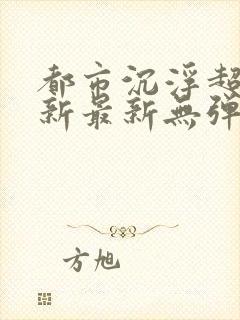 都市沉浮超
新最新無弹
方旭